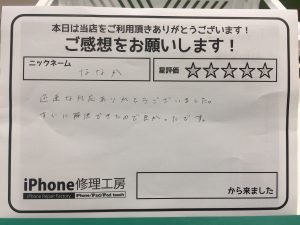 本日は当店をご利用頂きありがとうございます!
ご感想をお願いします!
ニックネーム
ななみ
星評価 ☆☆☆☆☆
迅速な対応ありがとうございました。
すぐに解決できたので良かったです。
iPhone修理工房
iPhone Repair Factory
iPhone/iPad/iPod touch
から来ました